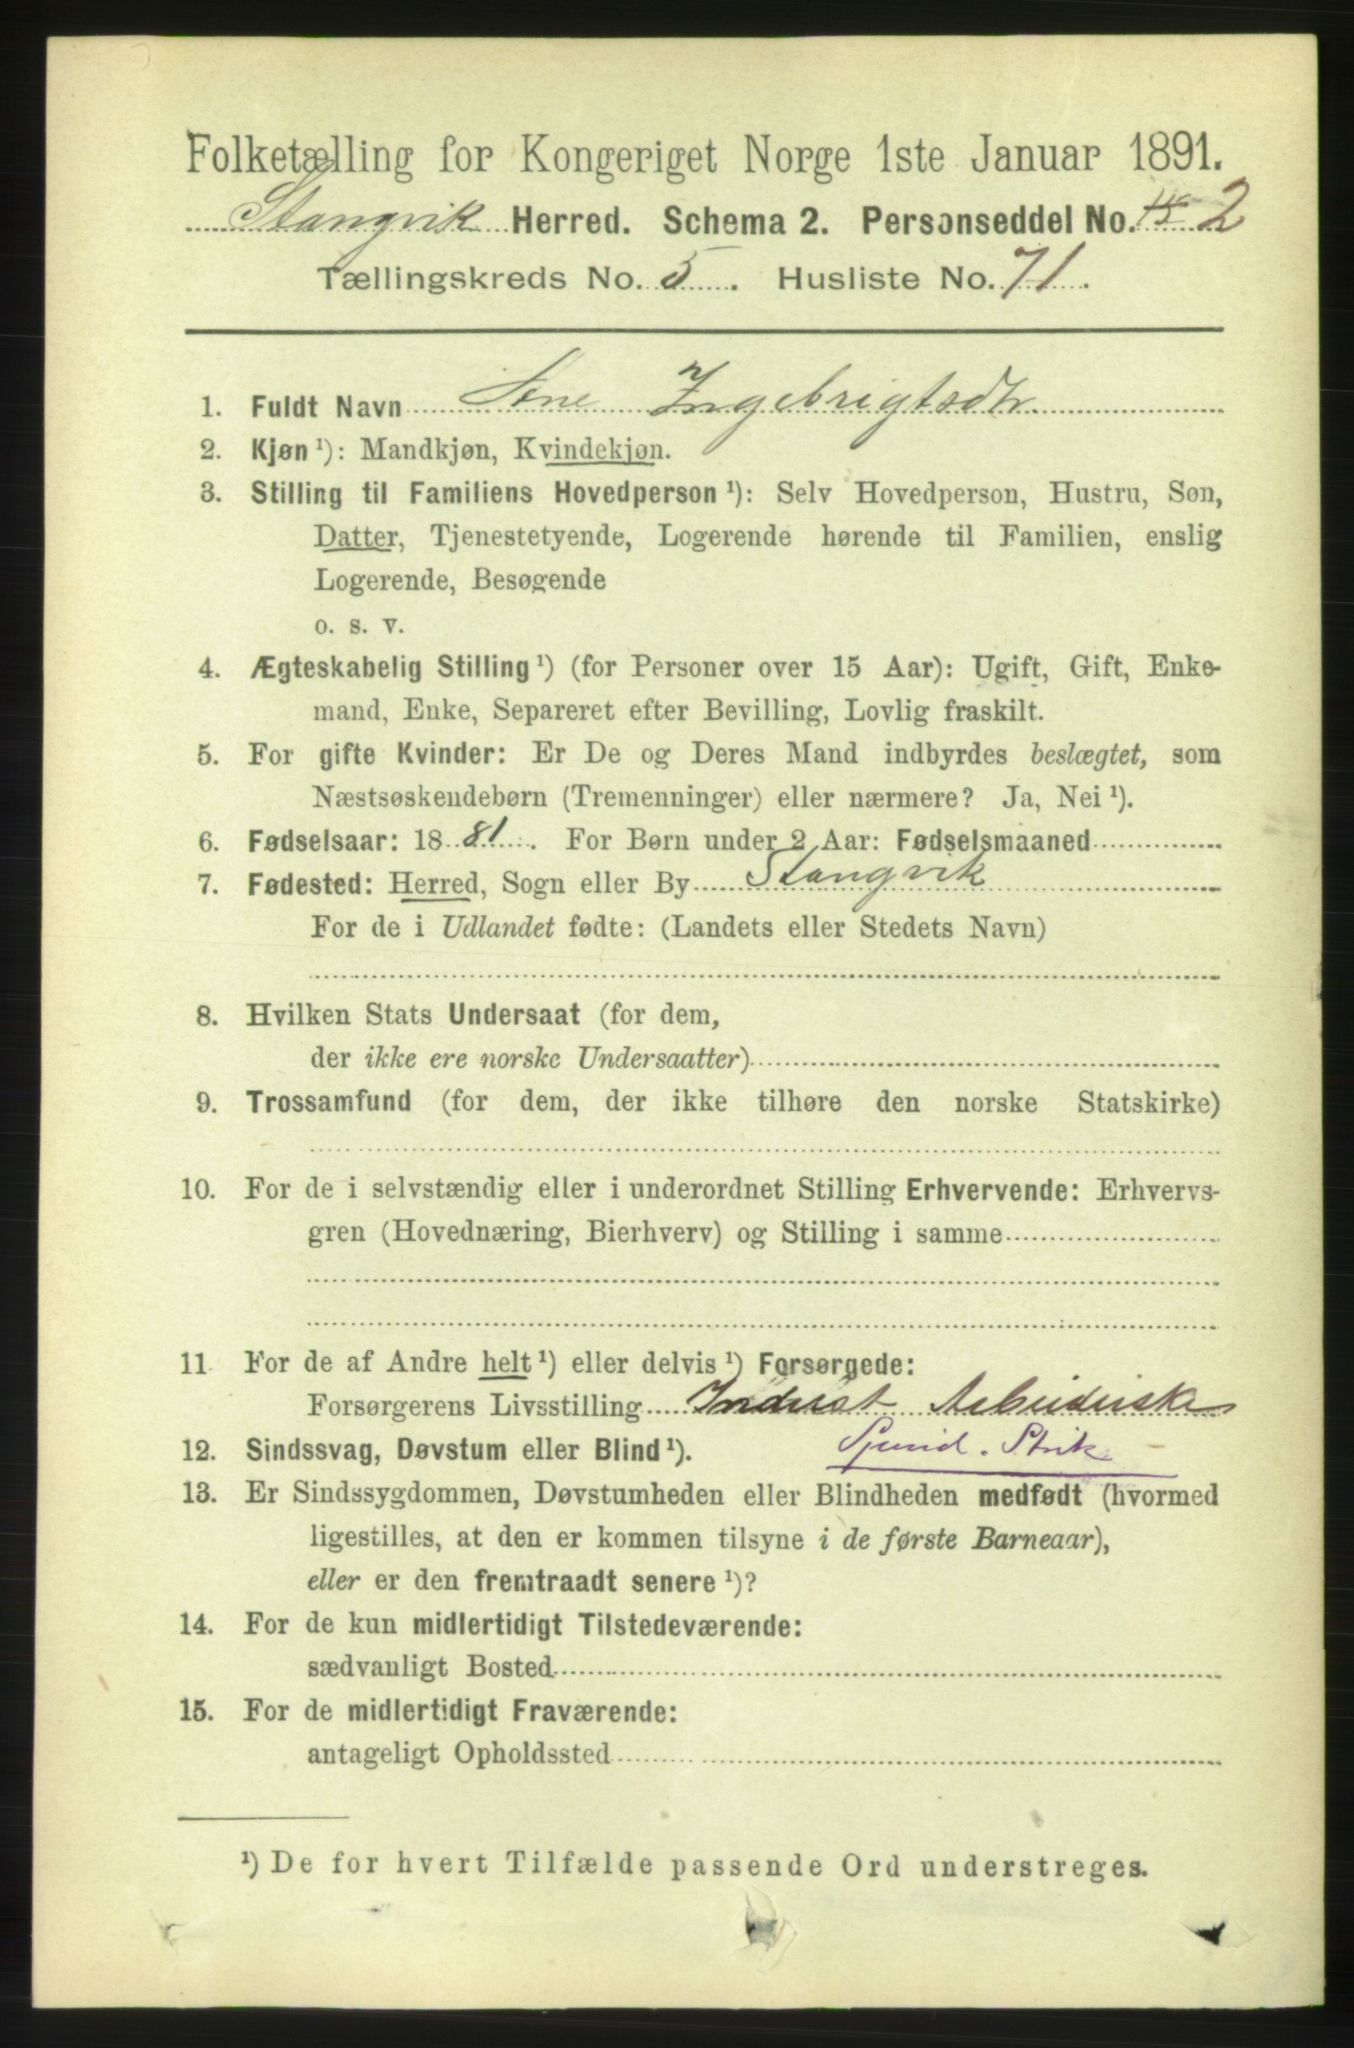 Folketælling for Kongeriget Norge 1ste Januar 1891.
Stangvik Herred. Schema 2. Personseddel No. 2
Tællingskreds No. 5. Husliste No. 71.
1. Fuldt Navn Ane Ingebrigtsdtr
2. Kjøn ¹): Mandkjøn, Kvindekjøn.
3. Stilling til Familiens Hovedperson ¹): Selv Hovedperson, Hustru, Søn,
Datter, Tjenestetyende, Logerende hørende til Familien, enslig
Logerende, Besøgende
o. s. v.
4. Ægteskabelig Stilling ¹) (for Personer over 15 Aar): Ugift, Gift, Enke-
mand, Enke, Separeret efter Bevilling, Lovlig fraskilt.
5. For gifte Kvinder: Er De og Deres Mand indbyrdes beslægtet, som
Næstsøskendebørn (Tremenninger) eller nærmere? Ja, Nei ¹).
6. Fødselsaar: 1881. For Børn under 2 Aar: Fødselsmaaned
7. Fødested: Herred, Sogn eller By Stangvik
For de i Udlandet fødte: (Landets eller Stedets Navn)
8. Hvilken Stats Undersaat (for dem,
der ikke ere norske Undersaatter)
9. Trossamfund (for dem, der ikke tilhøre den norske Statskirke)
10. For de i selvstændig eller i underordnet Stilling Erhvervende: Erhvervs-
gren (Hovednæring, Bierhverv) og Stilling i samme
11 For de af Andre helt ¹) eller delvis ¹) Forsørgede:
Forsørgerens Livsstilling Inderst Arbeiderske
12. Sindssvag, Døvstum eller Blind ¹). Strik
13. Er Sindssygdommen, Døvstumheden eller Blindheden medfødt (hvormed
ligestilles, at den er kommen tilsyne i de første Barneaar),
eller er den fremtraadt senere ¹)?
14. For de kun midlertidigt Tilstedeværende:
sædvanligt Bosted
15. For de midlertidigt Fraværende:
antageligt Opholdssted
¹) De for hvert Tilfælde passende Ord understreges.